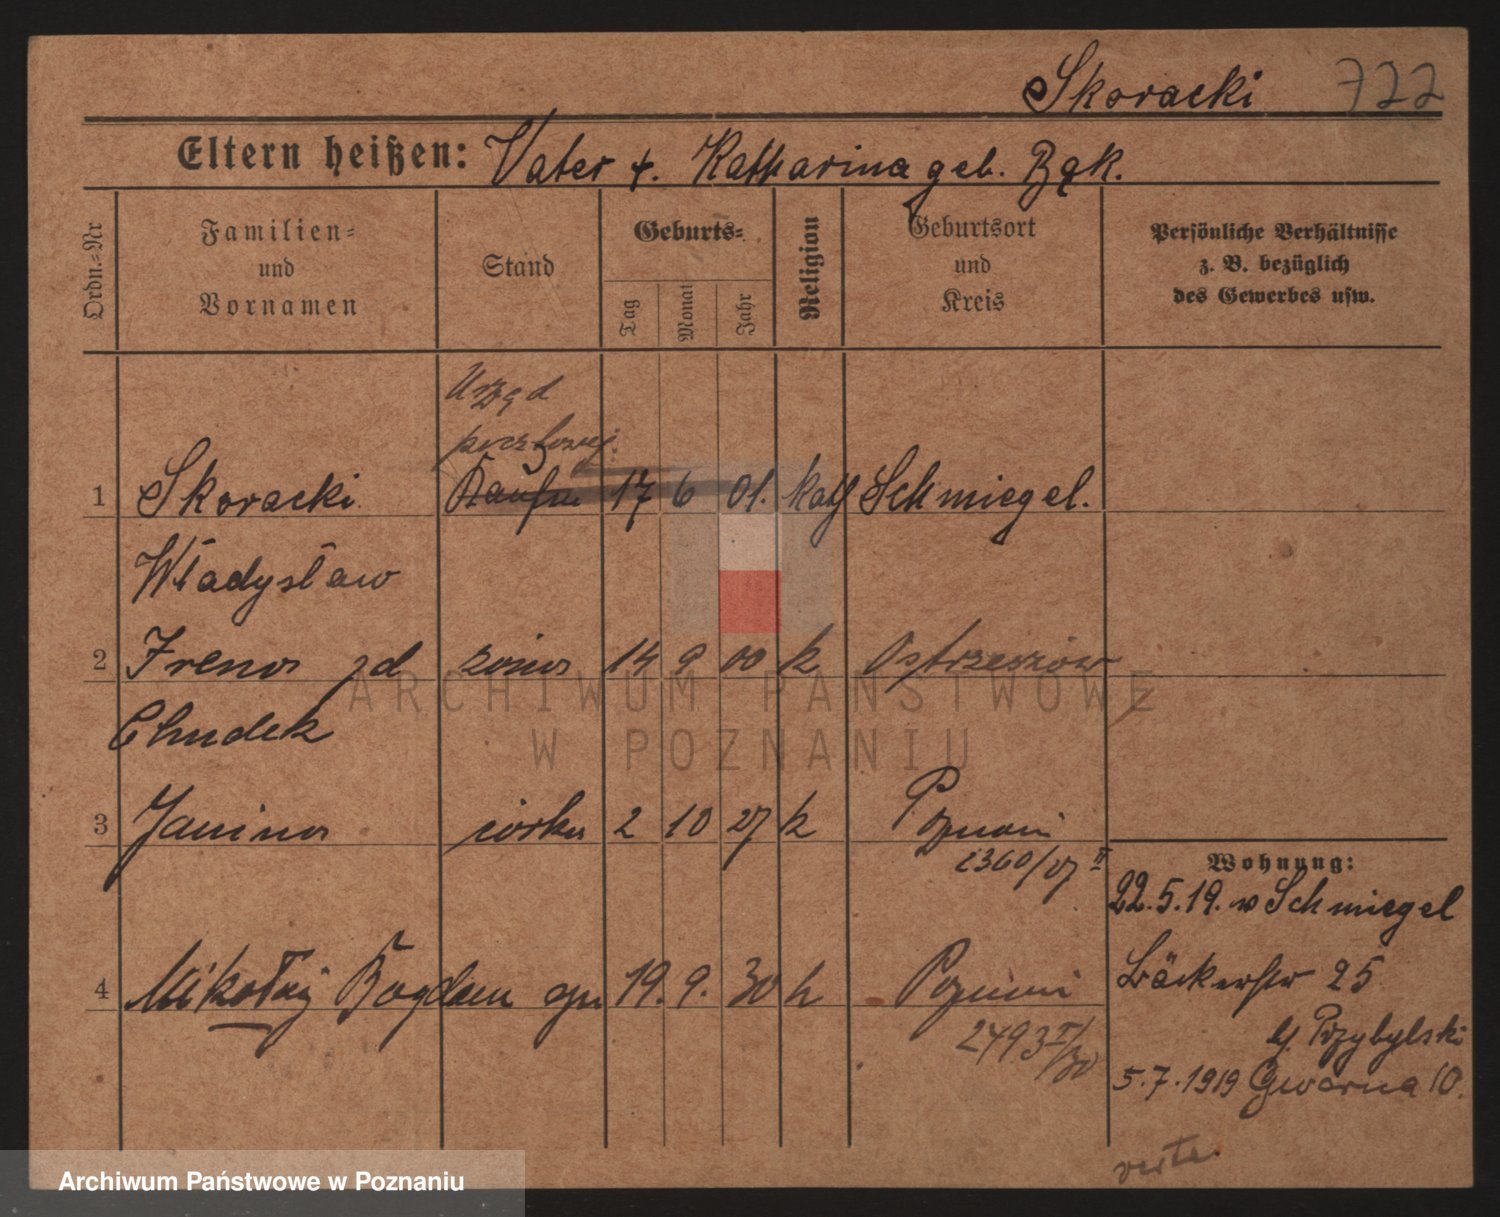 Skoracki 722
Eltern heißen: Vater †. Katharina geb. Bąk.
Ordn.-Nr
Familien-
und
Vornamen
Stand
Geburts-
Tag
Monat
Jahr
Religion
Geburtsort
und
Kreis
Persönliche Verhältnisse
z. B. bezüglich
des Gewerbes usw.
Urzęd
pocztowy
1 Skoracki Kaufm 17 6 01. kath Schmiegel.
Władysław
2 Irena zd żona 14 9 00 k Ostrzeszów
Chudek
3 Janina córka 2 10 27 k Poznań
1360/27 II
4 Mikołaj Bogdan syn 19. 9. 30 k Poznań
2493 I/30
Wohnung:
22.5.19. v Schmiegel
Bäckerstr 25
b/ Przybylski
5.7.1919 Gwarna 10.
verte.
ARCHIWUM PAŃSTWOWE
W POZNANIU
Archiwum Państwowe w Poznaniu